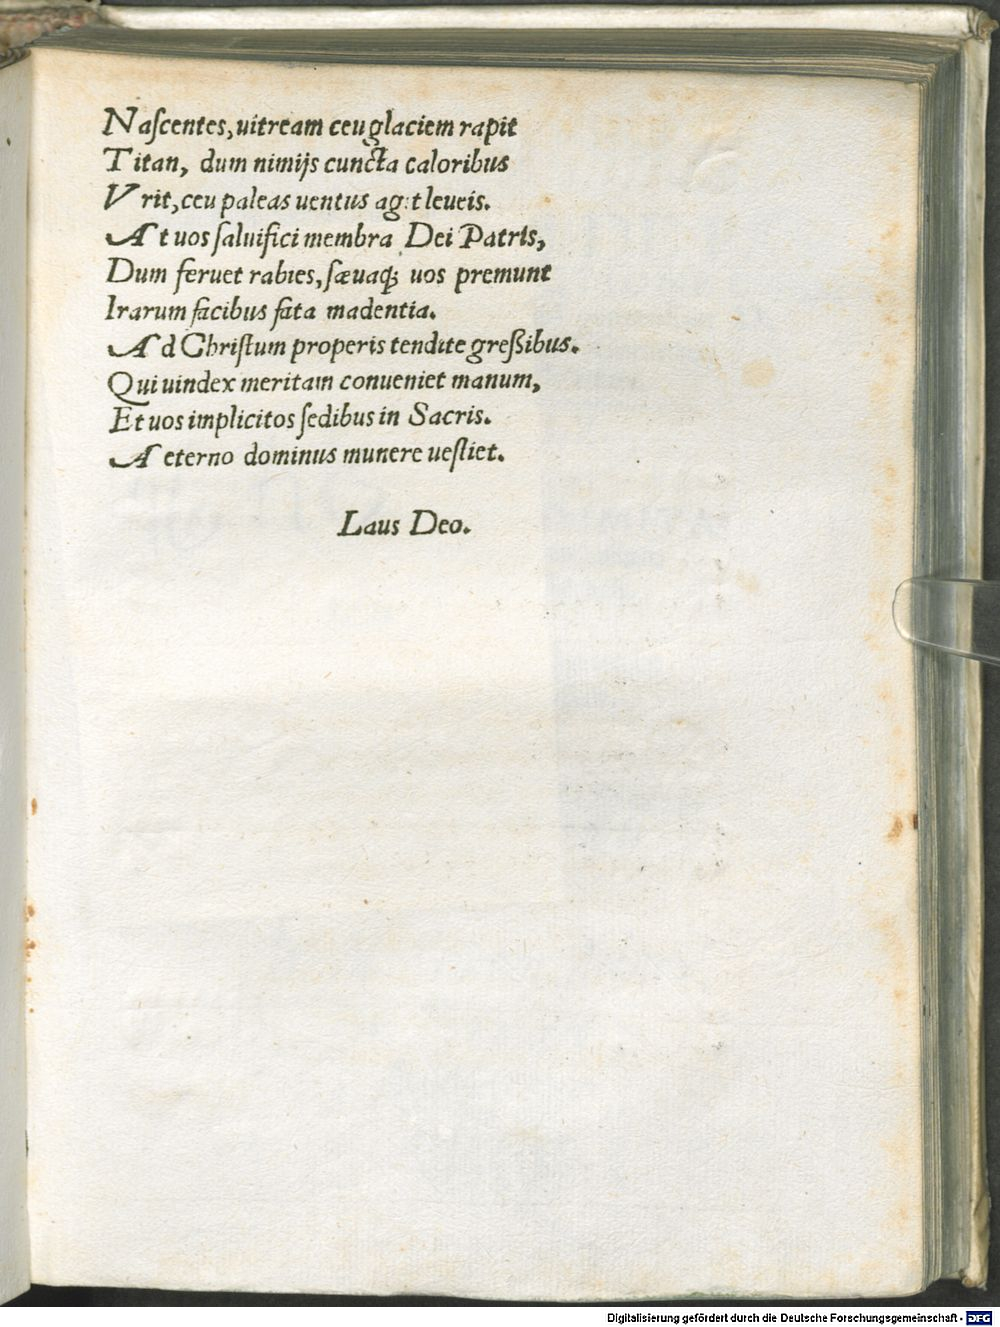 Naſcentes, uitream ceu glaciem rapit
Titan, dum nimijs cuncta caloribus
Vrit, ceu paleas uentus ag:t leueis.
At uos ſaluifici membra Dei Patris,
Dum feruet rabies, ſæuaq́; uos premunt
Irarum facibus fata madentia.
Ad Chriſtum properis tendite greßibus.
Qui uindex meritam conueniet manum,
Et uos implicitos ſedibus in Sacris.
Aeterno dominus munere ueſtiet.
Laus Deo.
Digitalisierung gefördert durch die Deutsche Forschungsgemeinschaft - DFG